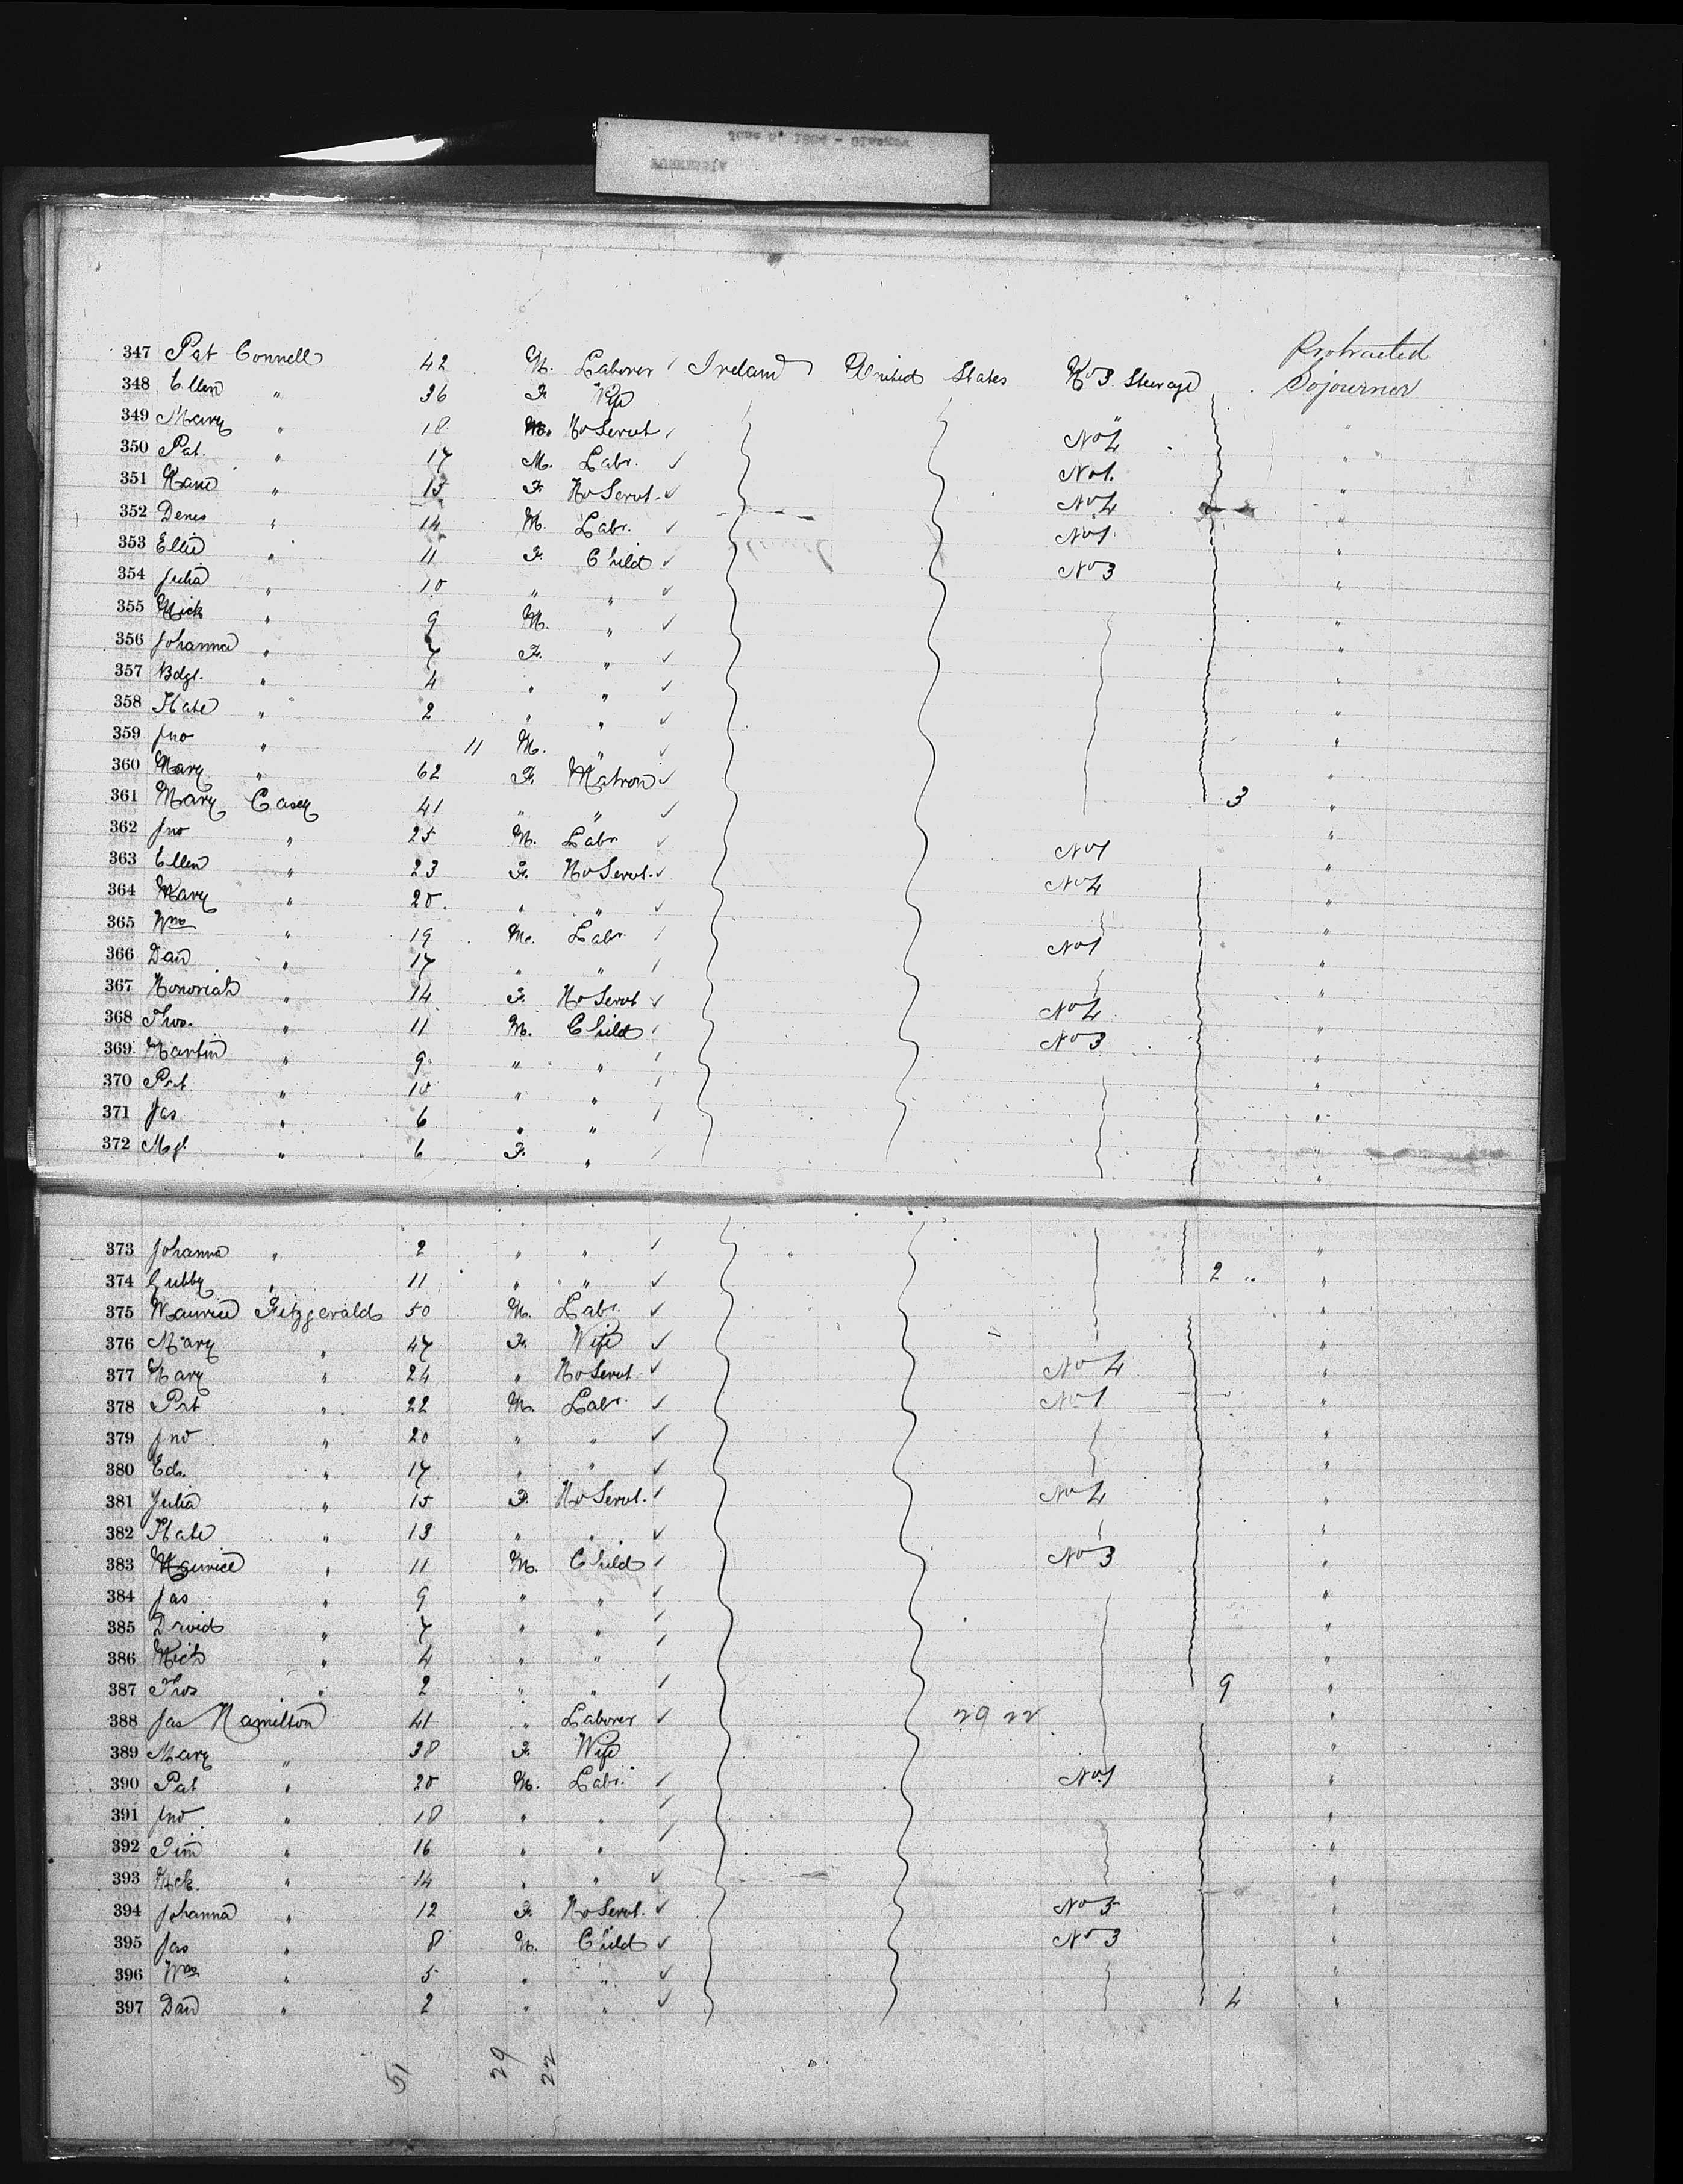 347 Pat Connell 42 M. Laborer Ireland United States No 3 Steerage Protracted Sojourner
348 Ellen " 36 F. Wife " "
349 Mary " 18 No Servt. No 4 "
350 Pat. " 17 M. Labr. No 1. "
351 " 15 F. No Servt. No 4 "
352 Denis " 14 M. Labr. No 1. "
353 Ellie " 11 F. Child No 3 "
354 Julia " 10 " " "
355 Mick " 9 M. " "
356 Johanna " 7 F. " "
357 Bdgt. " 4 " " "
358 Kate " 2 " " "
359 Jno " 11 M. " "
360 Mary " 62 F. Matron "
361 Mary Casey 41 " " 3 "
362 Jno " 25 M. Labr. No 1 "
363 Ellen " 23 F. No Servt. No 4 "
364 Mary " 20. " " "
365 Wm " 19 M. Labr. No 1 "
366 Dan " 17 " " "
367 Honoriah " 14 F. No Servt No 4 "
368 Thos. " 11 M. Child No 3 "
369 Martin " 9 " " "
370 Pat " 10 " " "
371 Jas " 6 " " "
372 Mgt. " 6 F. " "
373 Johanna " 2 " " "
374 " 11 " " 2 "
375 Maurice Fitzgerald 50 M. Labr. "
376 Mary " 47 F. Wife "
377 Mary " 24 " No Servt. No 4 "
378 Pat " 22 M. Labr. No 1 "
379 Jno " 20 " " "
380 Ed. " 17 " " "
381 Julia " 15 F. No Servt. No 4 "
382 Kate " 13 " " "
383 Maurice " 11 M. Child No 3 "
384 Jas " 9 " " "
385 David " 7 " " "
386 Mich " 4 " " "
387 Thos " 2 " " 9 "
388 Jas Hamilton 41 " Laborer 29 22 "
389 Mary " 38 F. Wife "
390 Pat " 20 M. Labr. No 1 "
391 Jno " 18 " " "
392 Tim " 16 " " "
393 Mck. " 14 " " "
394 Johanna " 12 F. No Servt. No 5 "
395 Jas " 8 M. Child No 3 "
396 Wm " 5 " " "
397 Dan " 2 " " 4 "
51 29 22